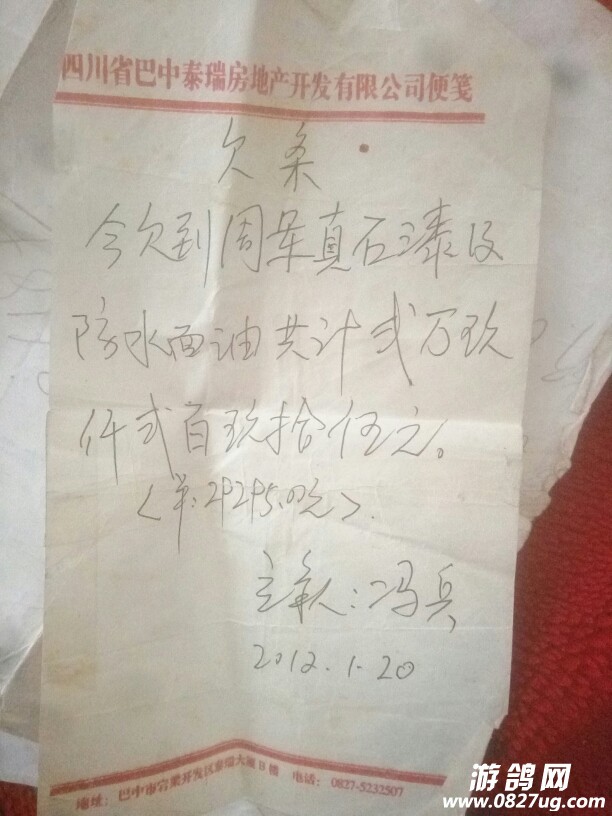 四川省巴中泰瑞房地产开发有限公司便笺
欠条
今欠到周杲真石漆及
防水面油共计贰万玖
仟贰百玖拾伍元。
29295.00元
冯兵
2012.1.20
地址：巴中市宕梁开发区泰瑞大厦B楼 电话：0827-5232507
游鸽网
www.0827ug.com